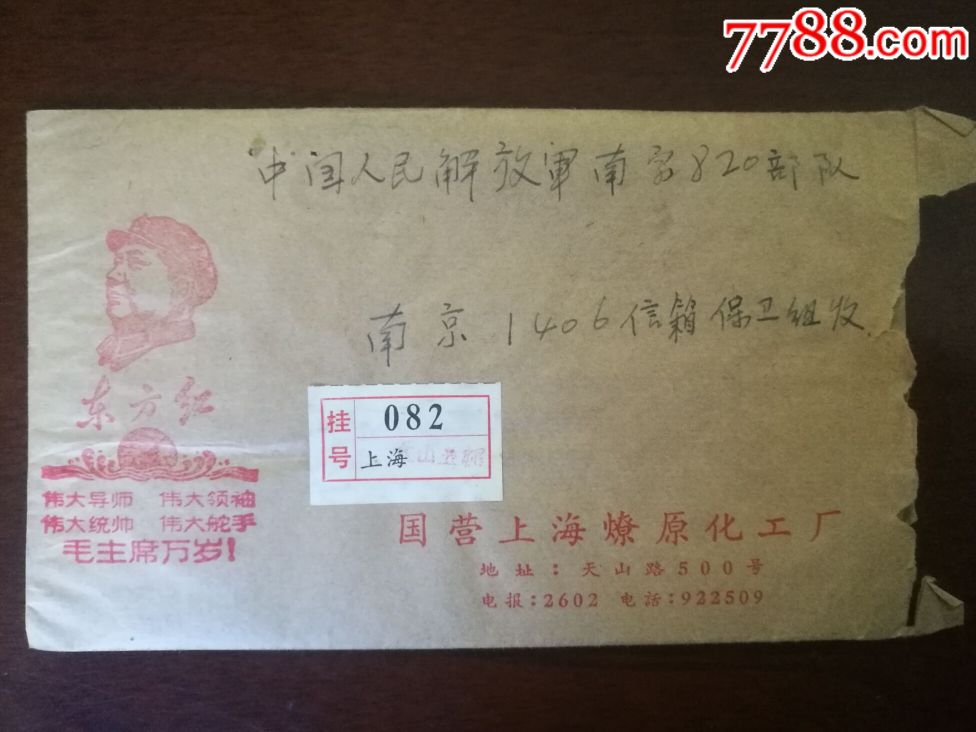 7788.com
中国人民解放军南京820部队
南京1406信箱保卫组收
东方红
伟大导师 伟大领袖
伟大统帅 伟大舵手
毛主席万岁!
挂号
082
上海
国营上海燎原化工厂
地址:天山路500号
电报:2602 电话:922509